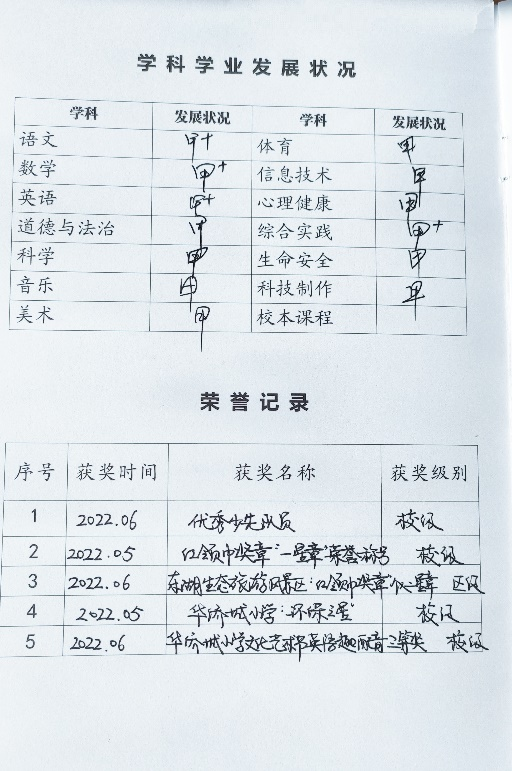 学科学业发展状况
学科 发展状况 学科 发展状况
语文 甲+ 体育 甲
数学 甲+ 信息技术 甲
英语 甲+ 心理健康 甲
道德与法治 甲 综合实践 甲+
科学 甲 生命安全 甲
音乐 甲 科技制作 甲
美术 甲 校本课程
荣誉记录
序号 获奖时间 获奖名称 获奖级别
1 2022.06 优秀少先队员 校级
2 2022.05 红领巾奖章"一星章"荣誉称号 校级
3 2022.06 东湖生态旅游风景区"红领巾奖章"个人二星章 区级
4 2022.05 华侨城小学"环保之星" 校级
5 2022.06 华侨城小学文化艺术节英语趣配音三等奖 校级